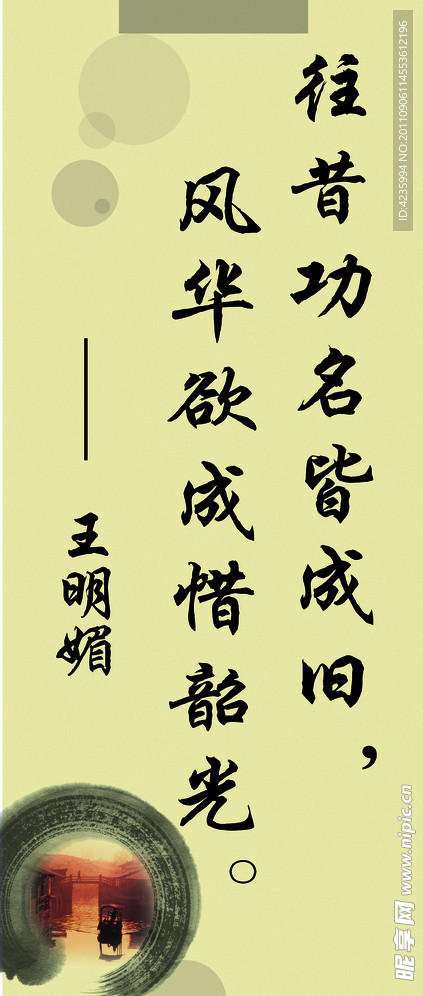 往昔功名皆成旧，
风华欲成惜韶光。
——王明媚
ID:4235994 NO:20110906114553612196
昵享网 www.nipic.cn